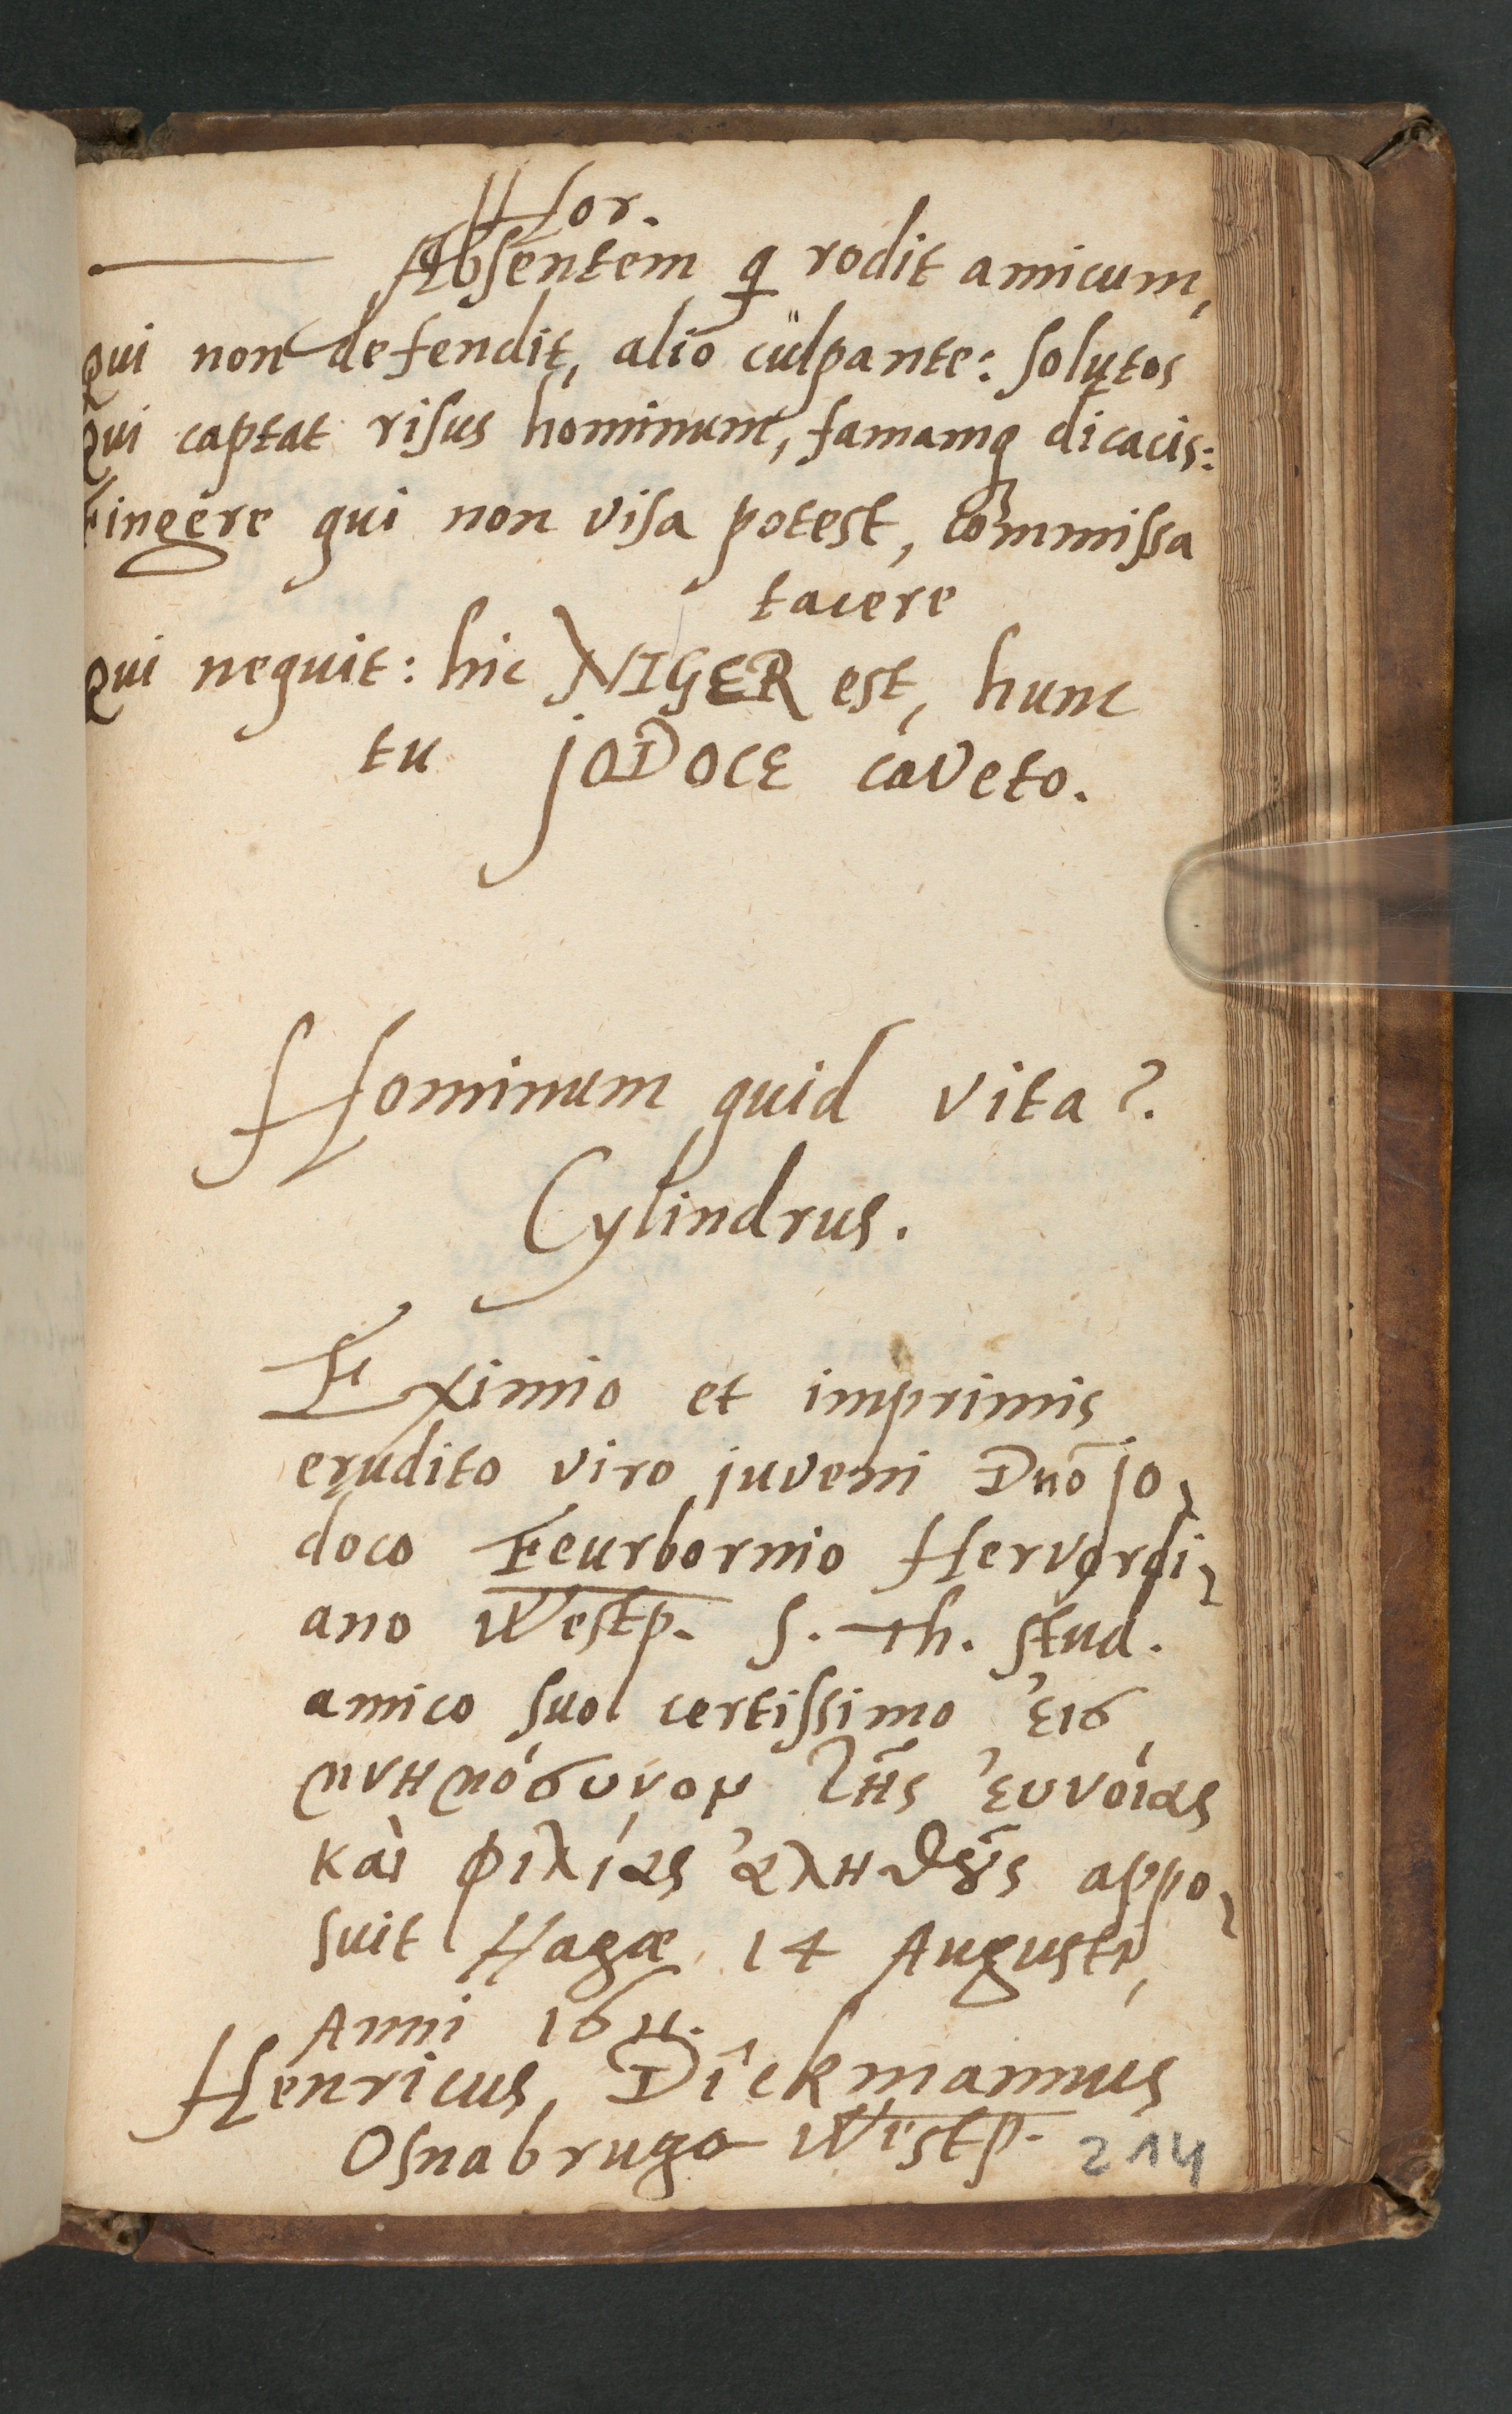 Hor.
Absentem q rodit amicum,
Qui non defendit, alio culpante: solutos
Qui captat risus hominum, famamq dicacis:
Fingere qui non visa potest, commissa
tacere
Qui nequit: hic NIGER est, hunc
tu JODOCE caveto.
Hominum quid vita?
Cylindrus.
Eximio et imprimis
erudito viro juveni Dnō Jo-
doco Feurbornio Hervordi-
ano Westp. S. Th. stud.
amico suo certissimo ἐις
μνημόσυνον τῆς ἐυνοίας
καὶ φιλίας ἀληθοῦς appo-
suit Hagæ 14 Augusti,
Anni 1611.
Henricus Dickmannus
Osnabrugo Westp.
214